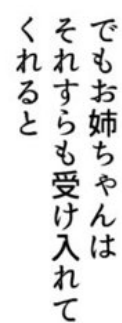 でもお姉ちゃんは
それすらも受け入れて
くれると